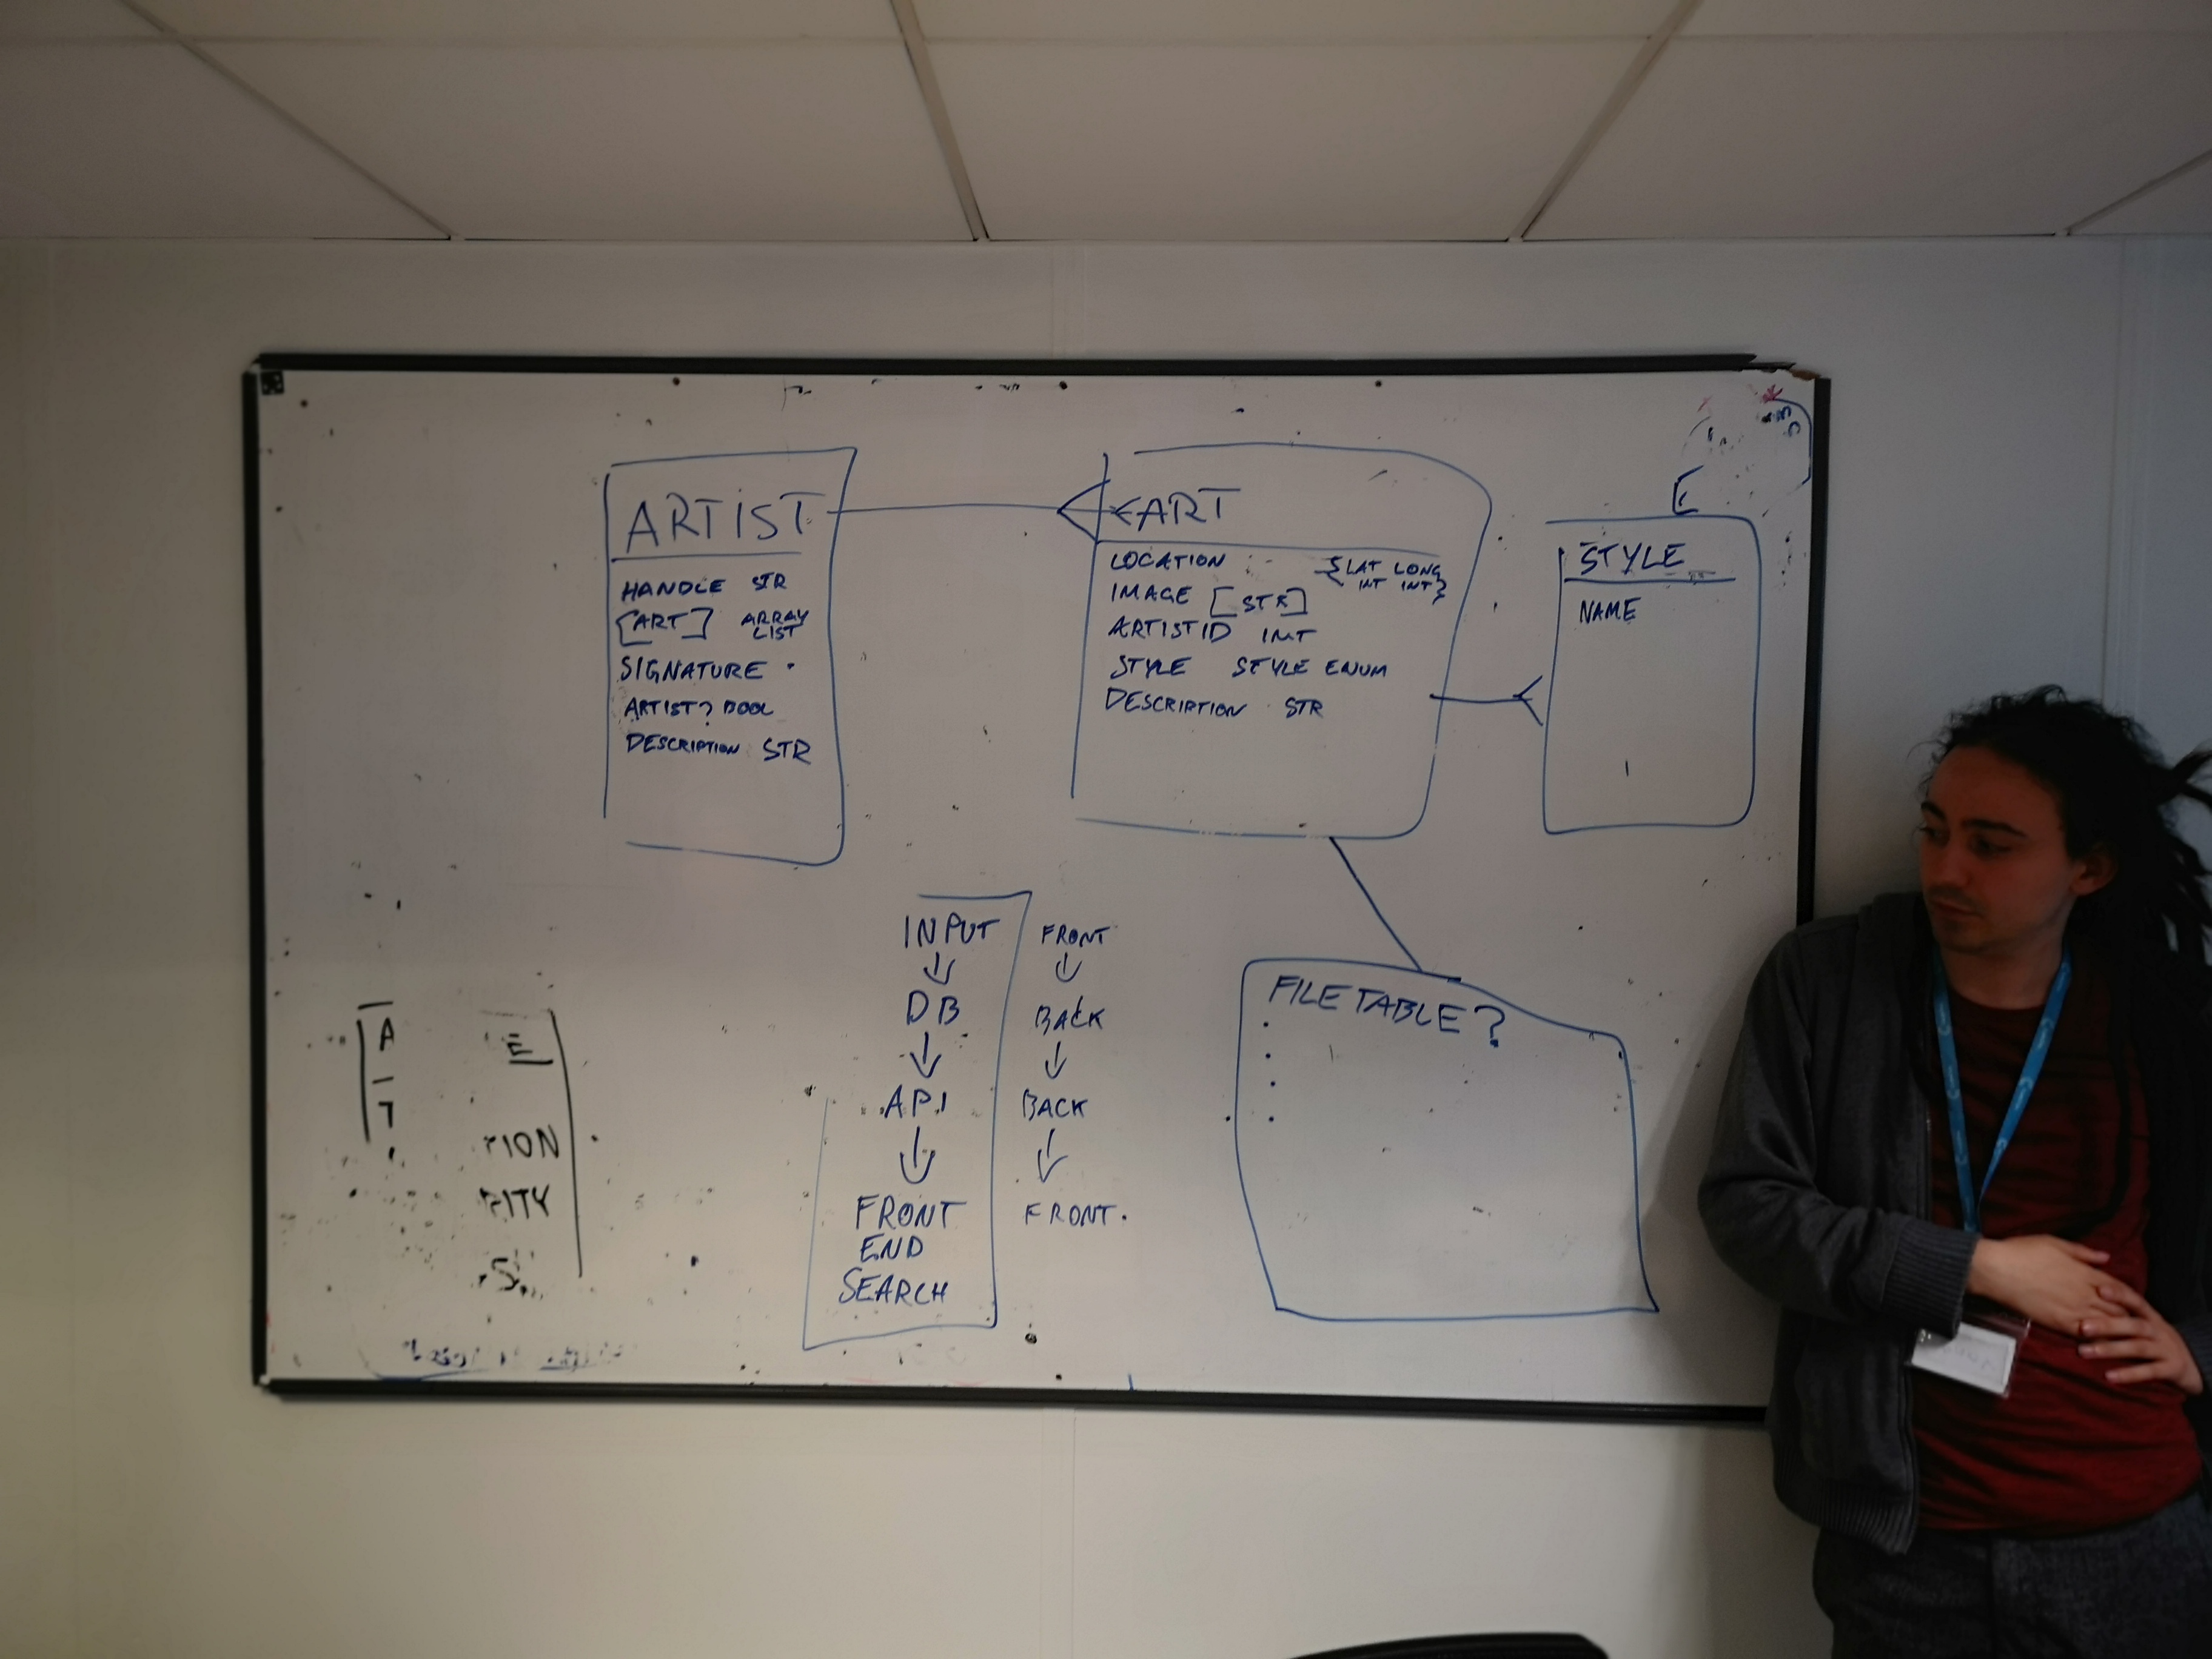 ARTIST
HANDLE STR
[ART] ARRAY LIST
SIGNATURE
ARTIST? BOOL
DESCRIPTION STR
ART
LOCATION {LAT LONG
INT INT}
IMAGE [STR]
ARTISTID INT
STYLE STYLE ENUM
DESCRIPTION STR
E
STYLE
NAME
INPUT FRONT
DB BACK
API BACK
FRONT FRONT.
END
SEARCH
FILETABLE?
A
E
TION
S